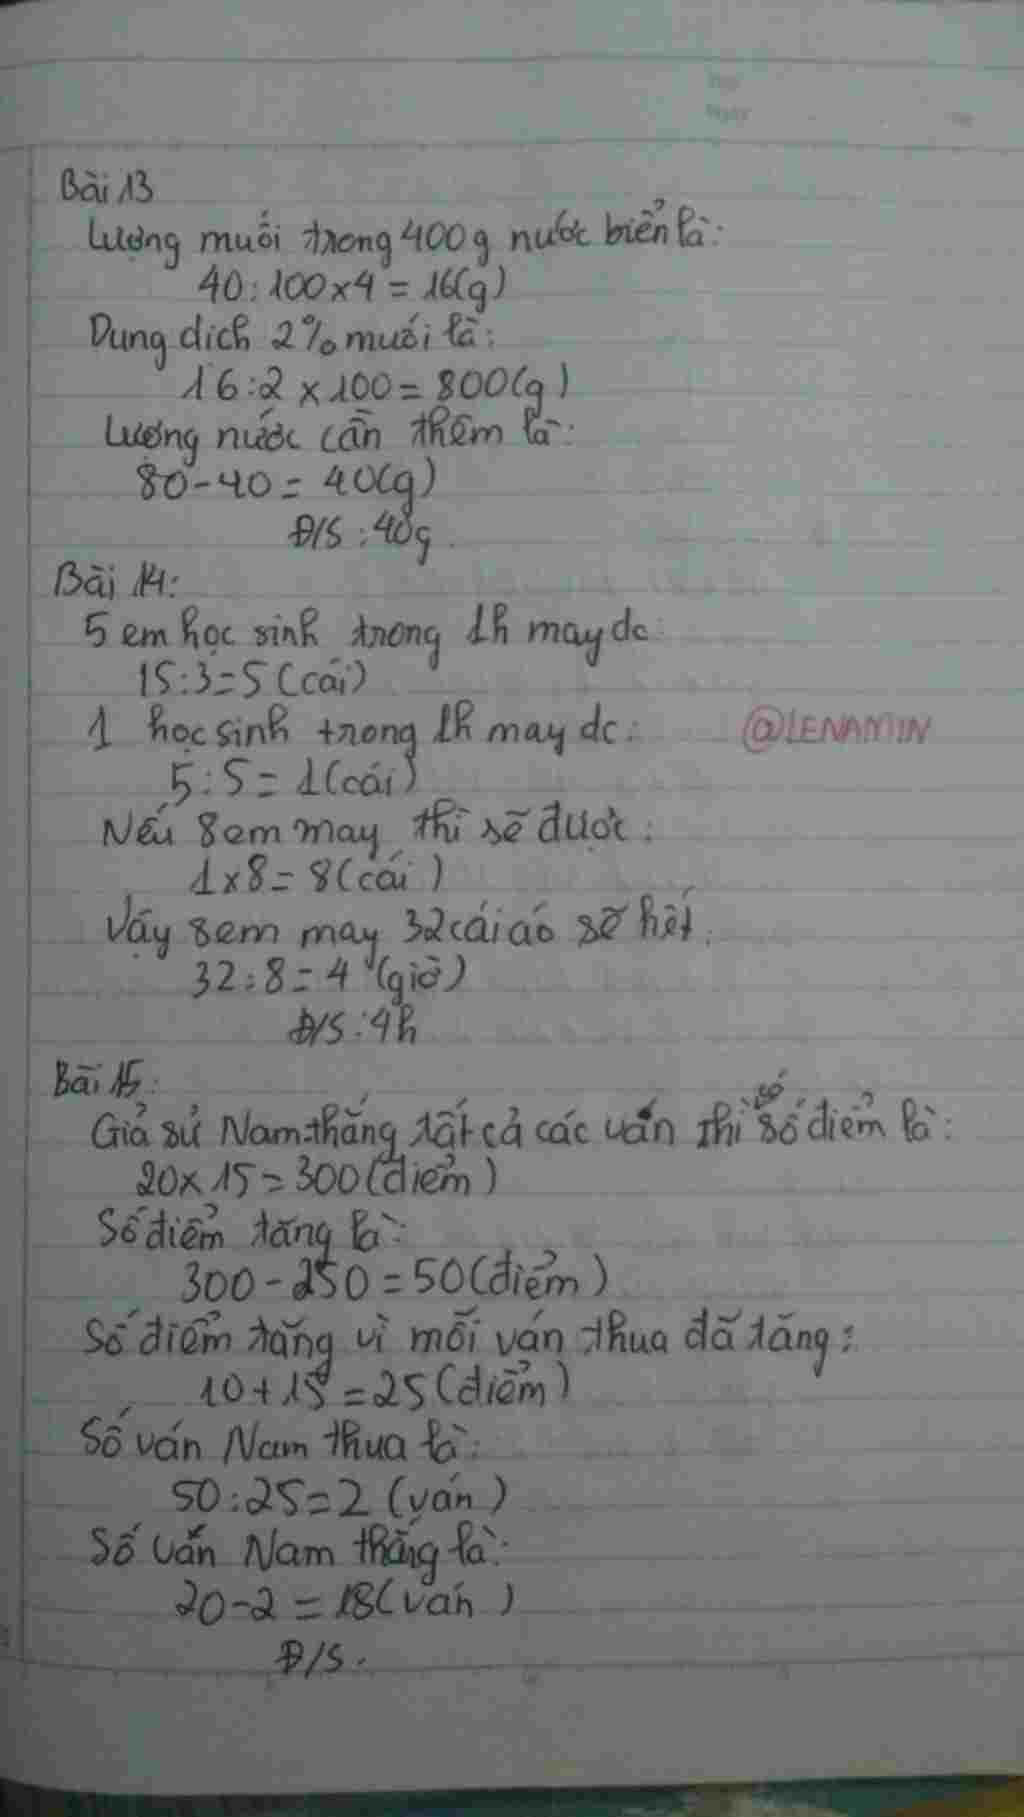 Bài 13
Lượng muối trong 400g nước biển là:
40:100x4 = 16(g)
Dung dịch 2% muối là:
16:2 x 100 = 800(g)
Lượng nước cần thêm là:
80-40 = 40(g)
Đ/S : 40g
Bài 14:
5 em học sinh trong 1h may dc:
15:3=5 (cái)
1 học sinh trong 1h may dc:
@LENAMIN
5:5 = 1(cái)
Nếu 8 em may thì sẽ được:
1x8 = 8(cái)
Vậy 8em may 32 cái áo sẽ hết:
32:8 = 4 (giờ)
Đ/S : 4h
Bài 15:
Giả sử Nam thắng tất cả các ván thì số điểm là:
20x15 = 300(điểm)
Số điểm tăng là:
300 - 250 = 50(điểm)
Số điểm tăng vì mỗi ván thua đã tăng:
10+15 = 25(điểm)
Số ván Nam thua là:
50:25=2 (ván)
Số ván Nam thắng là:
20-2 = 18(ván)
Đ/S.